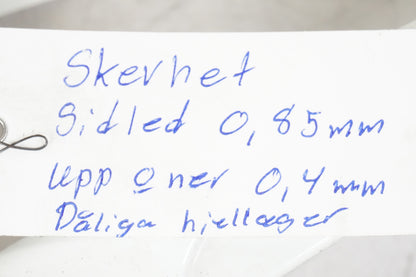 Skevhet
Sidled 0,85mm
upp o ner 0,4mm
Dåliga hjullager